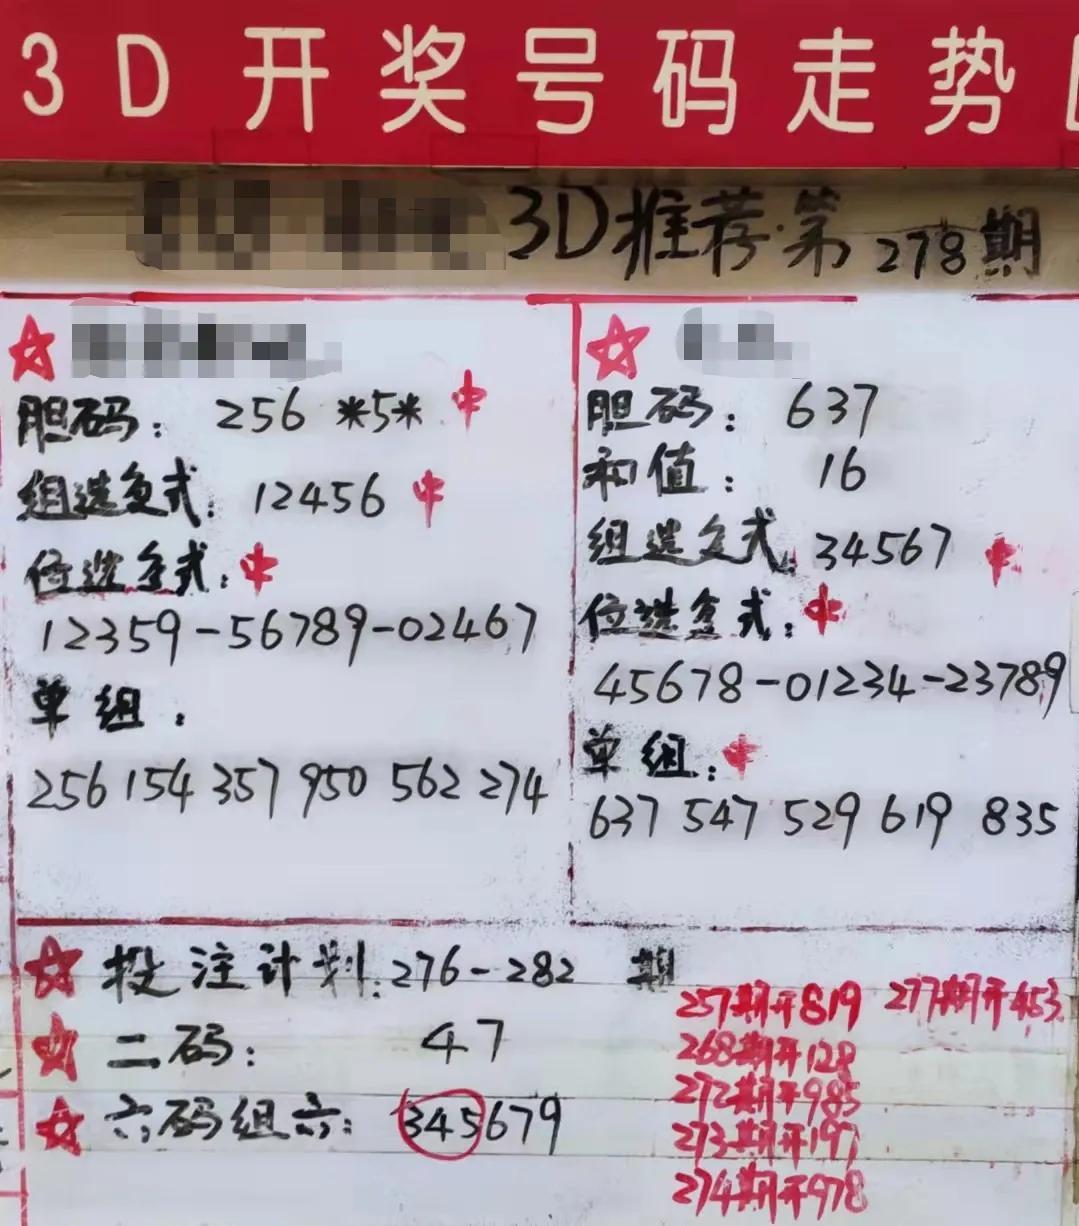 3D开奖号码走势
3D推荐·第278期
胆码：256 *5* 中
组选复式：12456 中
位选复式：中
12359-56789-02467
单组：
256 154 357 950 562 274
胆码：637
和值：16
组选复式：34567 中
位选复式：中
45678-01234-23789
单组：中
637 547 529 619 835
投注计划：276-282 期
二码：47
六码组六：345679
257期开819 277期开453
268期开128
272期开985
273期开197
274期开978